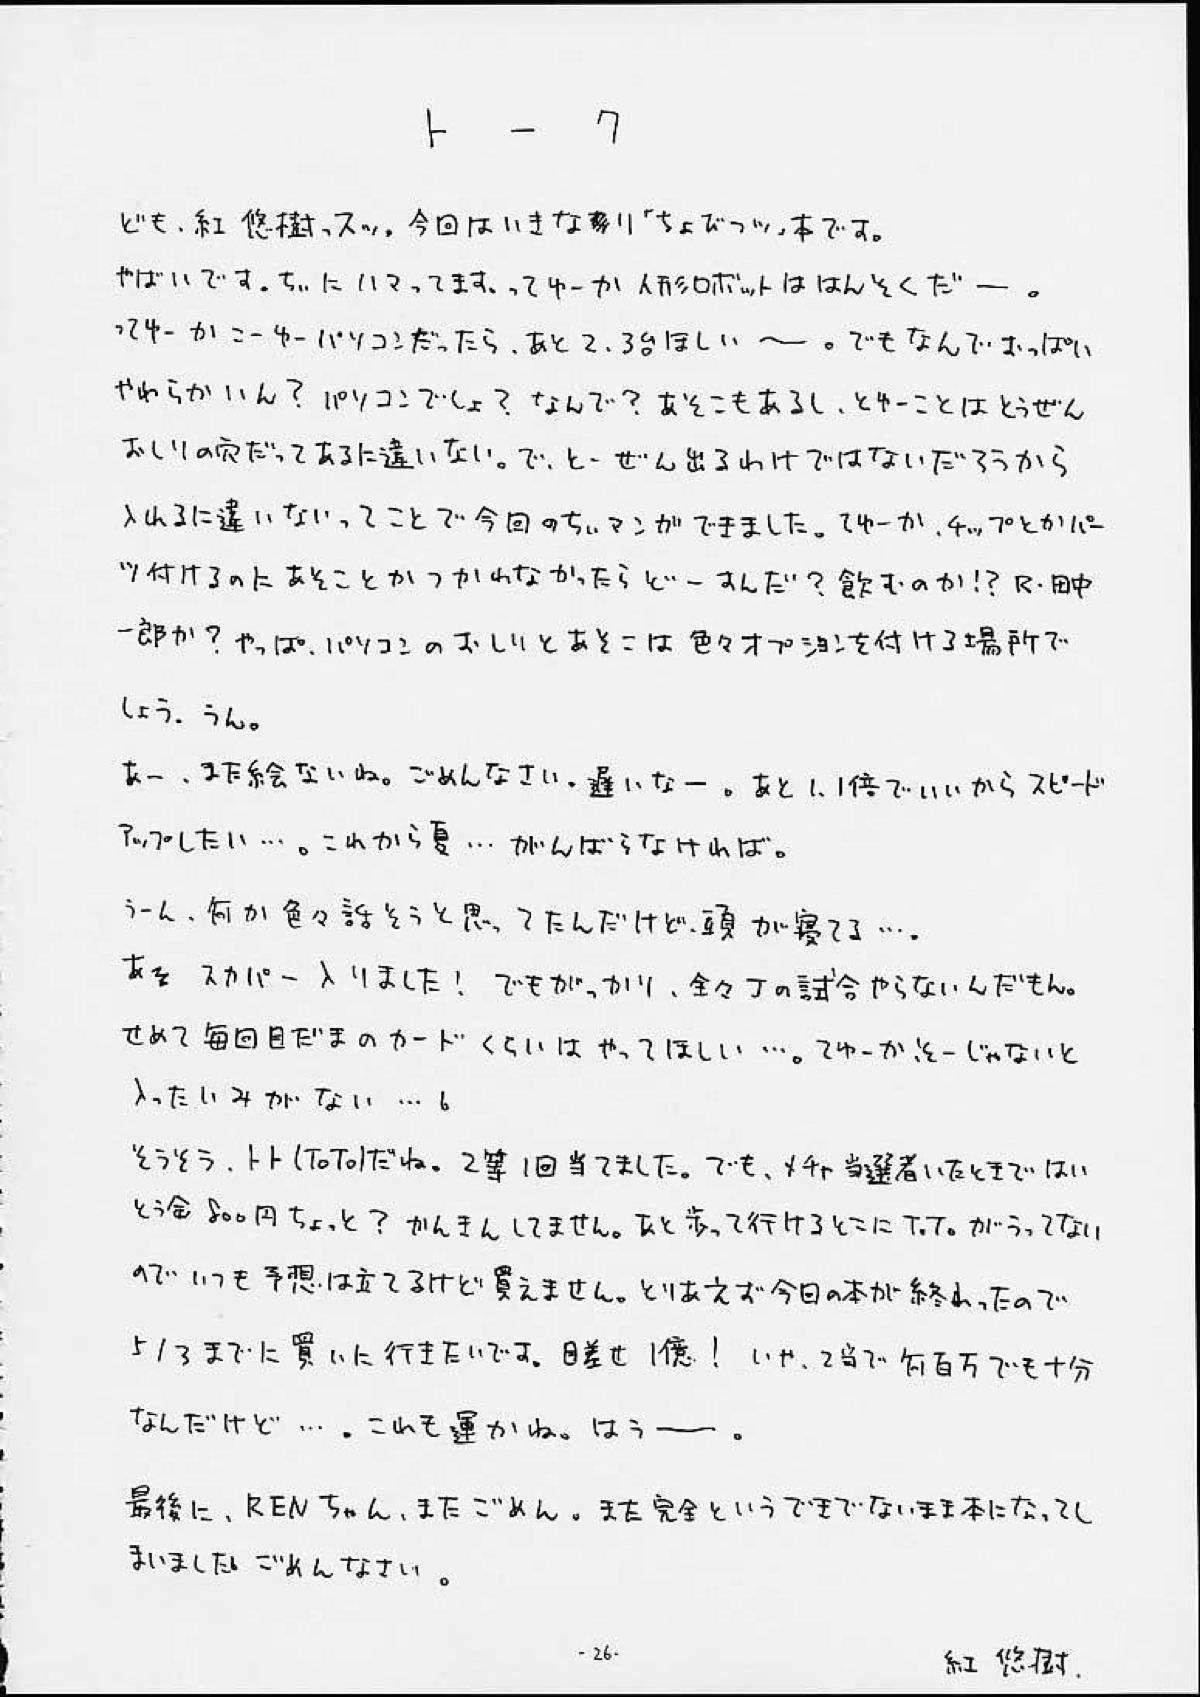 トーク
ども、紅 悠樹っスッ。今回はいきなり「ちょびっツ」本です。
やばいです。ちぃにハマってます。ってゆーか人形ロボットははんそくだー。
ってゆーかこーゆーパソコンだったら、あと2、3台ほしい〜。でもなんでおっぱい
やわらかいん？パソコンでしょ？なんで？あそこもあるし、とゆーことはとうぜん
おしりの穴だってあるに違いない。で、とーぜん出るわけではないだろうから
入れるに違いないってことで今回のちぃマンガできました。てゆーか、チップとかパー
ツ付けるのにあそことかつかわなかったらどーすんだ？飲むのか！？R・田中
一郎か？やっぱ、パソコンのおしりとあそこは色々オプションを付ける場所で
しょう。うん。
あー、また絵ないね。ごめんなさい。遅いなー。あと1.1倍でいいからスピード
アップしたい…。これから夏…がんばらなければ。
うーん、何か色々話そうと思ってたんだけど、頭が寝てる…。
スカパー入りました！でもがっかり、全々Jの試合やらないんだもん。
せめて毎回目だまのカードくらいはやってほしい…。てゆーか、そーじゃないと
入ったいみがない…。
そうそう、トト(ToTo)だね。2等1回当てました。でも、メチャ当選者いたときではい
とう金800円ちょっと？かんきんしてません。あと歩って行けるとこにToToがうってない
のでいつも予想は立てるけど買えません。とりあえず今日の本が終わったので
5/3までに買いに行きたいです。目差せ1億！いや、2当で何百万でも十分
なんだけど…。これも運かね。はうー。
最後に、RENちゃん、またごめん。また完全というできでないまま本になってし
まいました。ごめんなさい。
-26-
紅 悠樹.